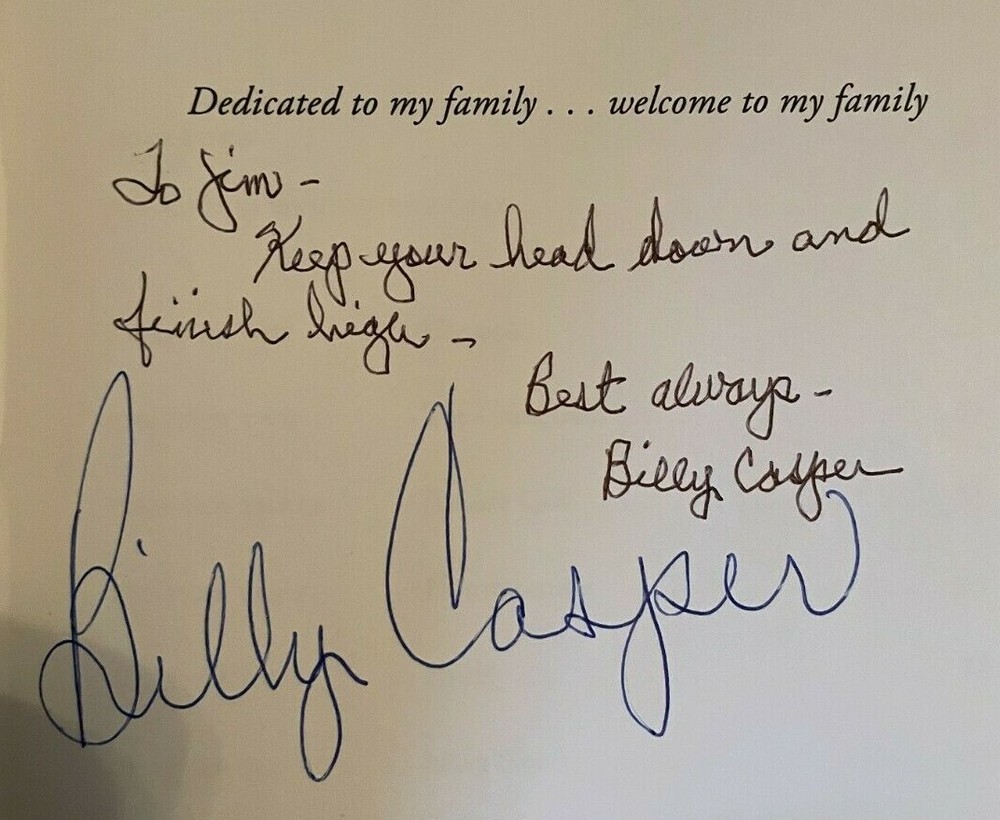 Dedicated to my family . . . welcome to my family
To Jim -
Keep your head down and
finish high -
Best always -
Billy Casper
Billy Casper